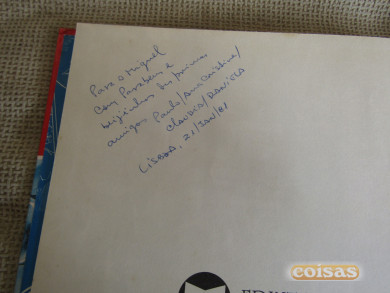 Para o Miguel
com parabens e
beijinhos dos primos
amigos Paulo/Ana Cristina/
Claudia/Daniela
Lisboa, 21/Jan/81
coisas